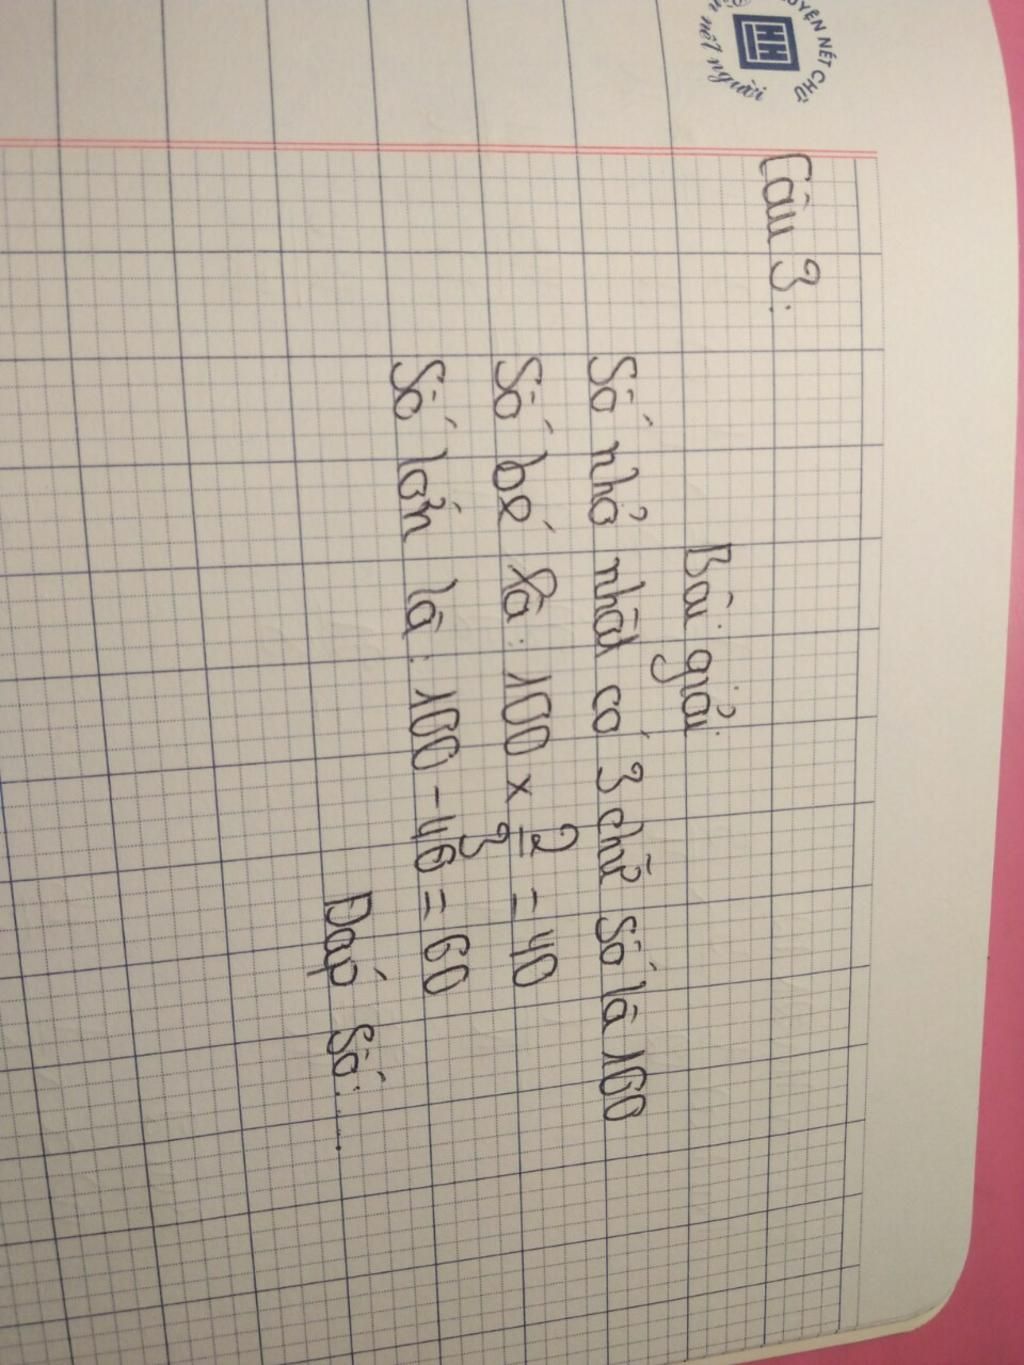 UYỆN NÉT CHỮ
HH
nết người
Câu 3:
Bài giải
Số nhỏ nhất có 3 chữ số là 100
Số bé là: 100 x 2/3 = 40
Số lớn là: 100 - 40 = 60
Đáp số:.....